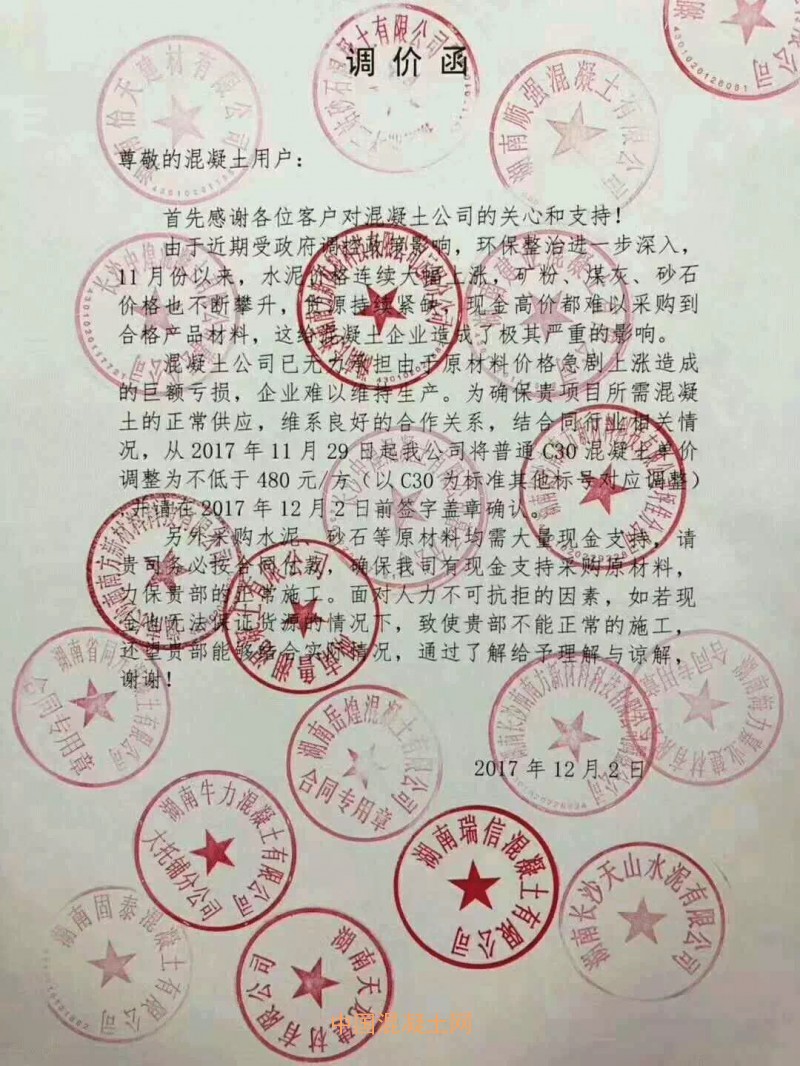 调价函
尊敬的混凝土用户：
首先感谢各位客户对混凝土公司的关心和支持！
由于近期受政府调控政策影响，环保整治进一步深入，
11月份以来，水泥价格连续大幅上涨，矿粉、煤灰、砂石
价格也不断攀升，货源持续紧缺，现金高价都难以采购到
合格产品材料，这给混凝土企业造成了极其严重的影响。
混凝土公司已无力承担由于原材料价格急剧上涨造成
的巨额亏损，企业难以维持生产。为确保贵项目所需混凝
土的正常供应，维系良好的合作关系，结合同行业相关情
况，从2017年11月29日起我公司将普通C30混凝土单价
调整为不低于480元/方（以C30为标准其他标号对应调整）
,并请在2017年12月2日前签字盖章确认。
另外采购水泥、砂石等原材料均需大量现金支持，请
贵司务必按合同付款，确保我司有现金支持采购原材料，
力保贵部的正常施工。面对人力不可抗拒的因素，如若现
金也无法保证货源的情况下，致使贵部不能正常的施工，
还望贵部能够结合实际情况，通过了解给予理解与谅解，
谢谢！
2017年12月2日
湖南怡天建材有限公司
湖南顺强混凝土有限公司
4301020128081
湖南岳煌混凝土有限公司
合同专用章
合同专用章
合同专用章
湖南牛力混凝土有限公司
大托铺分公司
湖南瑞信混凝土有限公司
湖南长沙天山水泥有限公司
湖南固泰混凝土有限公司
建材有限公司
中国混凝土网